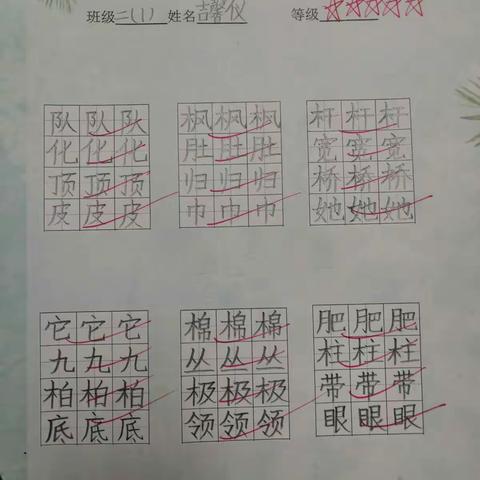 班级二(1) 姓名吉馨仪 等级☆☆☆☆☆
队队队 枫枫枫 杆杆杆
化化化 肚肚肚 宽宽宽
顶顶顶 归归归 桥桥桥
皮皮皮 巾巾巾 她她她
它它它 棉棉棉 肥肥肥
九九九 丛丛丛 柱柱柱
柏柏柏 极极极 带带带
底底底 领领领 眼眼眼